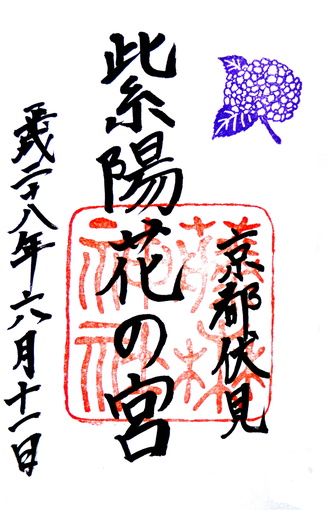 京都伏見
紫陽花の宮
平成二十八年六月十一日
藤森
神社